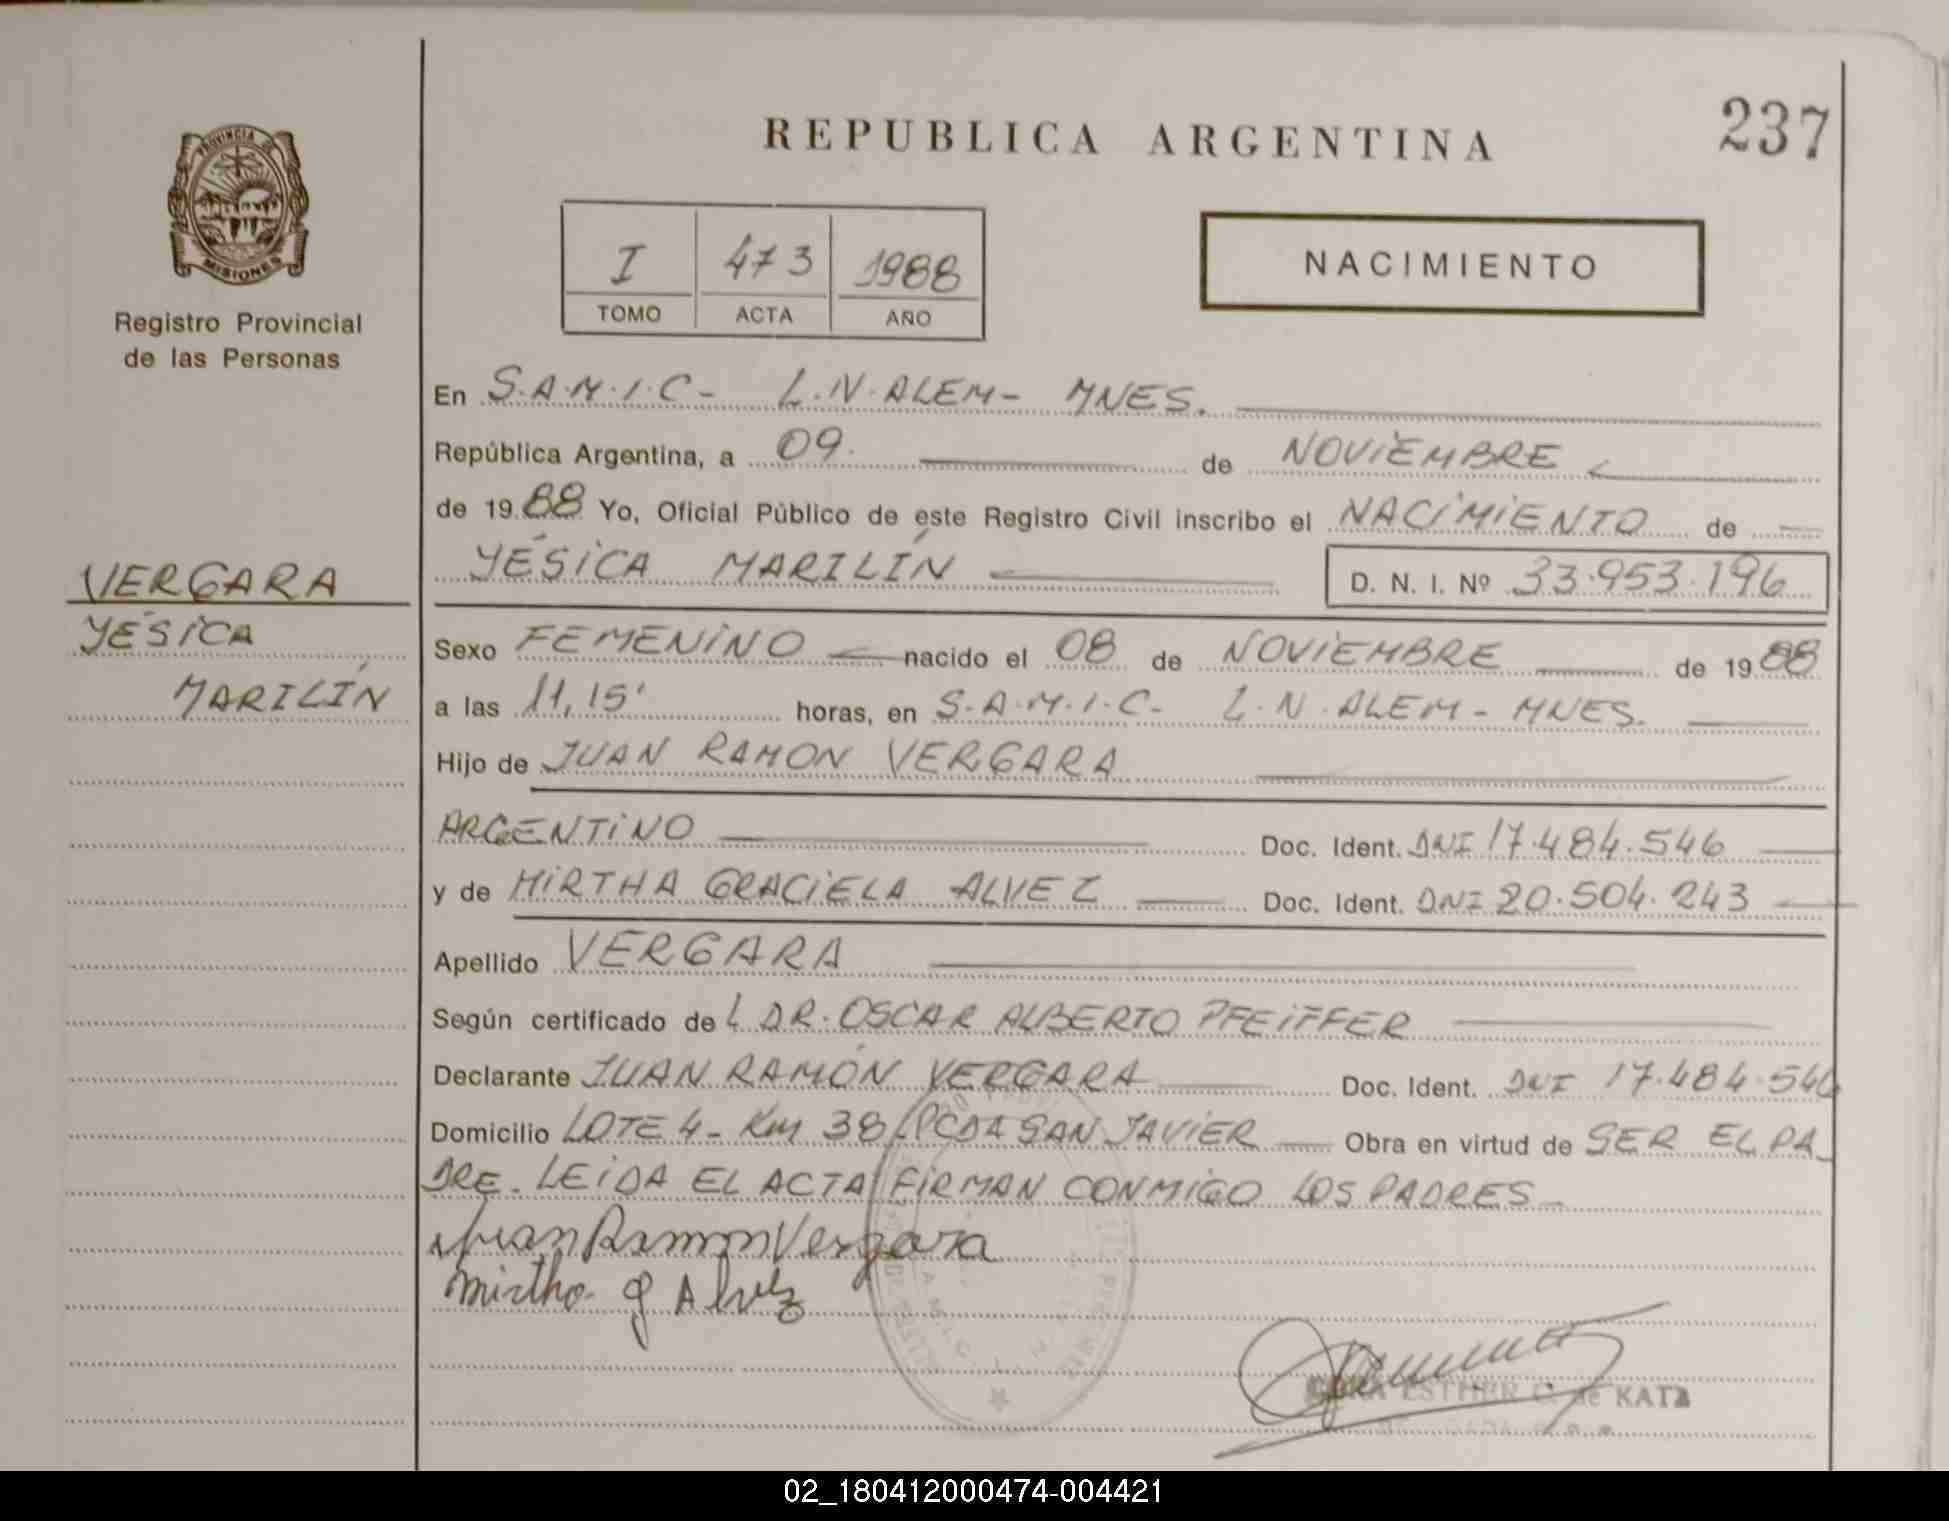 REPUBLICA ARGENTINA
237
PROVINCIA DE
MISIONES
Registro Provincial
de las Personas
I 473 1988
TOMO ACTA AÑO
NACIMIENTO
En S.A.M.I.C- L.N.ALEM- MNES.
República Argentina, a 09. de NOVIEMBRE
de 1988 Yo, Oficial Público de este Registro Civil inscribo el NACIMIENTO de
YÉSICA MARILÍN D. N. I. Nº 33.953.196
VERGARA
YÉSICA
MARILÍN
Sexo FEMENINO nacido el 08 de NOVIEMBRE de 1988
a las 11,15' horas, en S.A.M.I.C- L.N.ALEM- MNES.
Hijo de JUAN RAMON VERGARA
ARGENTINO Doc. Ident. DNI 17.484.546
y de MIRTHA GRACIELA ALVEZ Doc. Ident. DNI 20.504.243
Apellido VERGARA
Según certificado de L DR. OSCAR ALBERTO PFEIFFER
Declarante JUAN RAMÓN VERGARA Doc. Ident. DNI 17.484.546
Domicilio LOTE 4- Km 38 PCDA SAN JAVIER Obra en virtud de SER EL PA_
DRE. LEIDA EL ACTA FIRMAN CONMIGO LOS PADRES_
Juan Ramon Vergara
Mirtha g Alvez
ESTHER C. de KATA
02_180412000474-004421